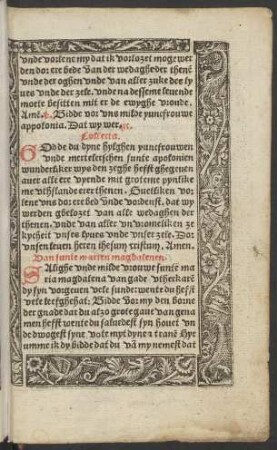 vnde vorlene my dat ik vorlozet moge wer
den dorch ere bede van der wedaghe der thene
vnde der oghen vnde van aller zuke des ly
ues vnde der zele. vnde na dessem leuende
mote besitten mit er de ewyghe vroude.
Amē. v. Bidde vor vns milde yuncfrouwe
appolonia. Dat wy wer. rc.
Collecta.
GOd de du dyne hylghen yuncfrouwen
vnde mertelerschen sunte apolonien
wunderliker wys den zeghe hefft ghegeuen
auer alle ere vyende mit groteme pynlike
me vthslande erer thenen. Guetliken vor
lene vns dorch ere bed vnde vordenst. dat wy
werden ghelozet van alle wedaghen der
thenen. vnde van aller vnvornoliken ze
kycheit vnses lyues vnde vnser zele. Dorch
vnsen leuen heren ihesum cristum. Amen.
Van sunte marien magdalenen.
SAlighe vnde milde vrouwe sunte ma
ria magdalena van gade vthe karē
dy syn vorgeuen vele sunde: wente du hefst
vele leef ghehat: Bidde vor my den borne
der gnade dat du alzo grote gaue van gena
men hefft wente du saluedest syn houet vn
de dwogest syne vote myt dyne trane Hyr
vmme ik dy bidde dat du vā my nemest dat